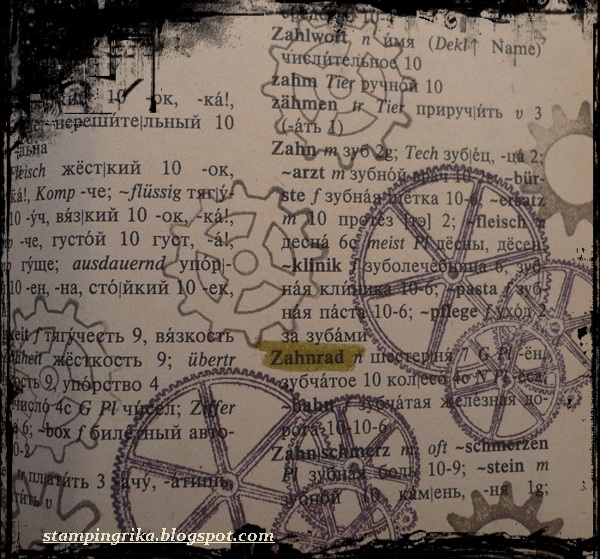 10 -ок, -ка́!,
нереши́те|льный 10
Fleisch жёст|кий 10 -ок,
-ка́!, Komp -че; ~flüssig тяг|у́-
10 -уч, вя́з|кий 10 -ок, -ка́!,
-че, густо́й 10 густ, -а́!,
гу́ще; ausdauernd упо́р|-
10 -ен, -на, сто́|йкий 10 -ек,
f тягу́честь 9, вя́зкость
жёсткость 9; übertr
упо́рство 4
число́ 4c G Pl чи́сел; Ziffer
6; ~box f биле́тный авто-
плати́ть 3 -ачу́, -а́тишь
Zahlwort n и́мя (Dekl↑ Name)
числи́тельное 10
zahm Tier ручно́й 10
zähmen tr Tier прируч|и́ть v 3
(-а́ть 1)
Zahn m зуб 2g; Tech зуб|е́ц, -ца́ 2;
~arzt m зубно́й врач 10-2e; ~bür-
ste f зубна́я щётка 10-6; ~ersatz
m 10 проте́з [тэ] 2; ~fleisch n
десна́ 6c, meist Pl дёсны, дёсен
~klinik f зуболече́бница 6, зуб-
на́я кли́ника 10-6; ~pasta f зуб-
на́я па́ста 10-6; ~pflege f ухо́д 2
за зуба́ми
Zahnrad n шестерня́ 7 G Pl -ён,
зубча́тое 10 кол|есо́ 4c N Pl -ёса;
~bahn f зубча́тая желе́зная до-
ро́га 10-10-6
Zahn|schmerz m, oft ~schmerzen
Pl зубна́я боль 10-9; ~stein m
зубно́й 10 ка́м|ень, -ня 1g;
stampingrika.blogspot.com